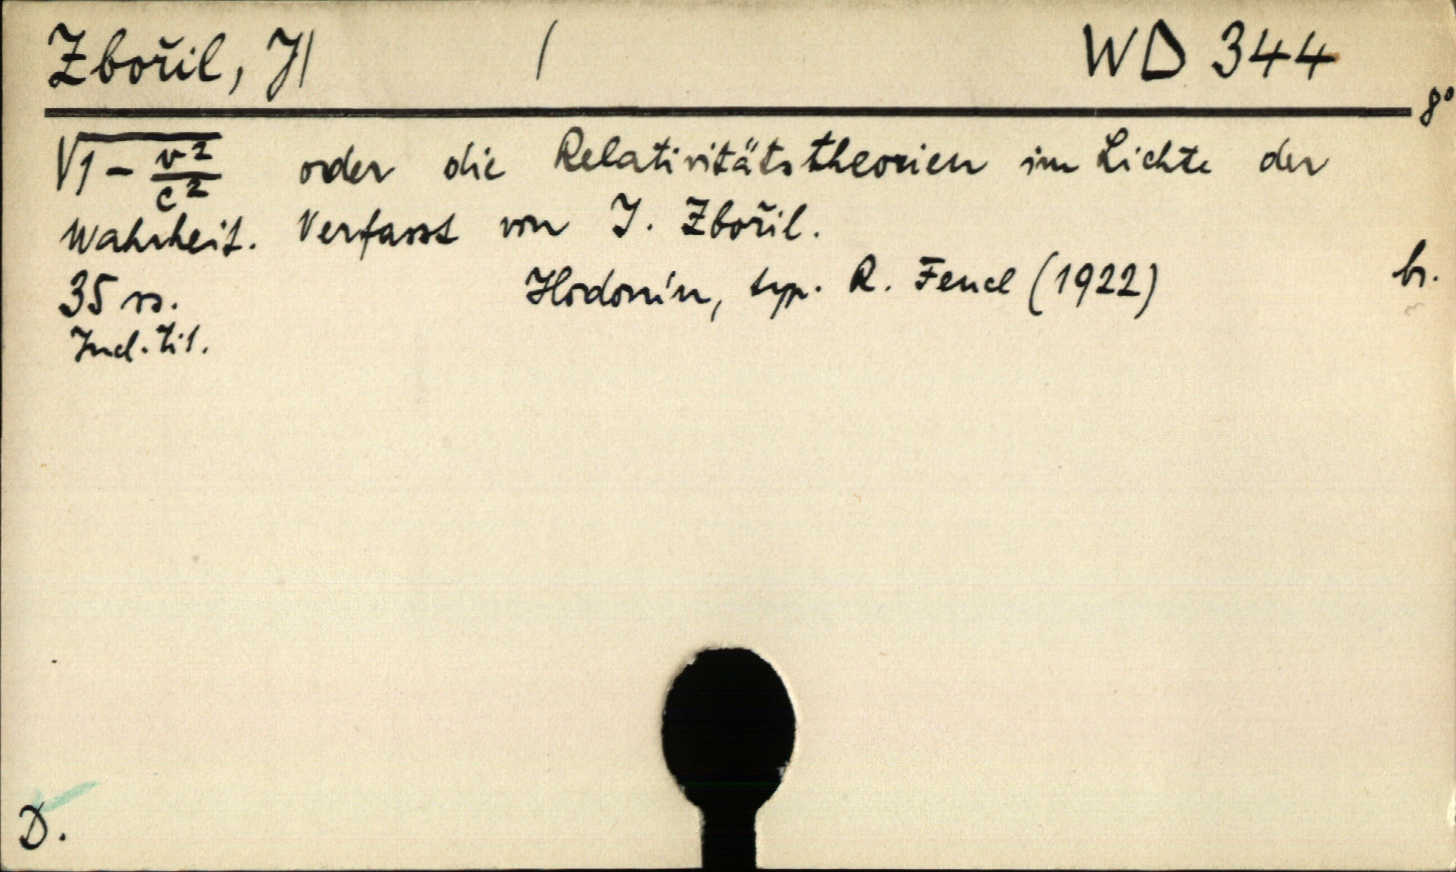 Zbořil, J| / WD 344
8°
√1 - v²/c² oder die Relativitätstheorien im Lichte der
Wahrheit. Verfasst von J. Zbořil.
35 ss. Hodonín, typ. R. Fencl (1922) br.
Incl. tit.
D.